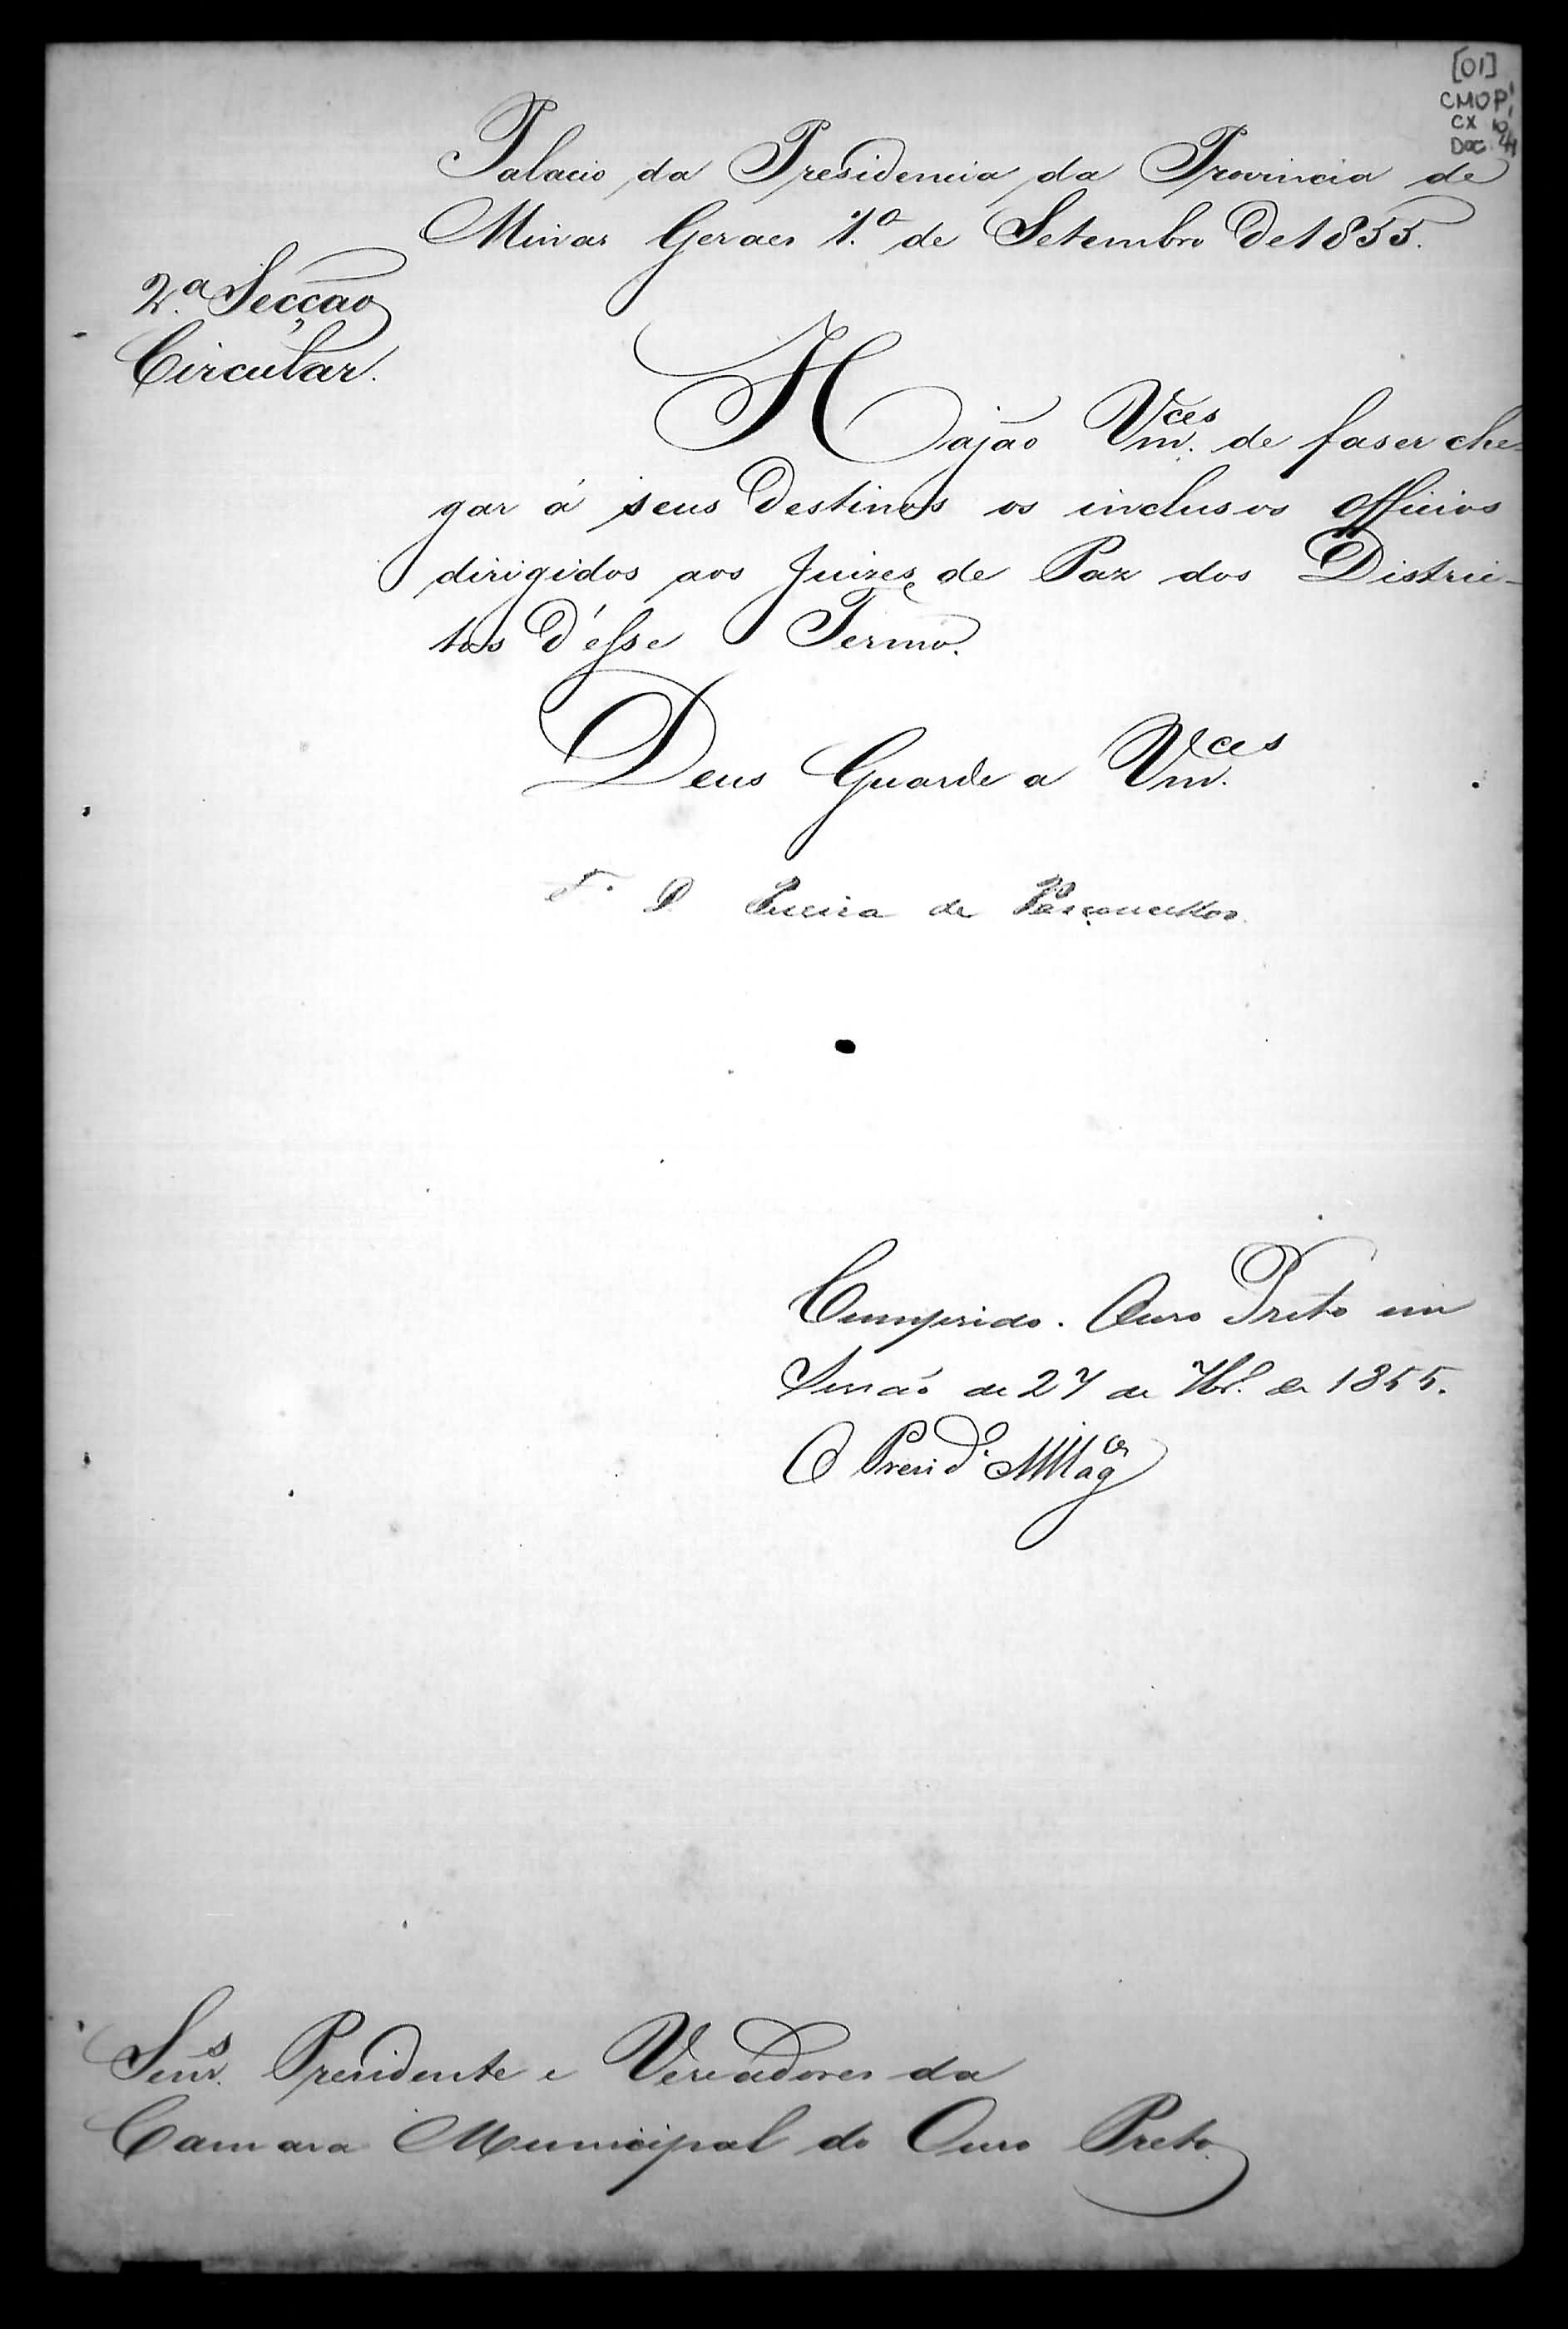 [01]
CMOP
CX 10
DOC 24
Palacio da Presidencia da Provincia de
Minas Geraes 1.º de Setembro de 1855.
2.ª Secção
Circular.
Hajão Vm.ces de faser che-
gar á seus destinos os inclusos officios
dirigidos aos Juizes de Paz dos Distric-
tos d'esse Termo.
Deus Guarde a Vm.ces
F. D Pereira de Vasconcellos
Cumprido. Ouro Preto em
Sessão de 27 de 7br.º de 1855.
O Presid.e
Sen.s Presidente e Vereadores da
Camara Municipal do Ouro Preto.